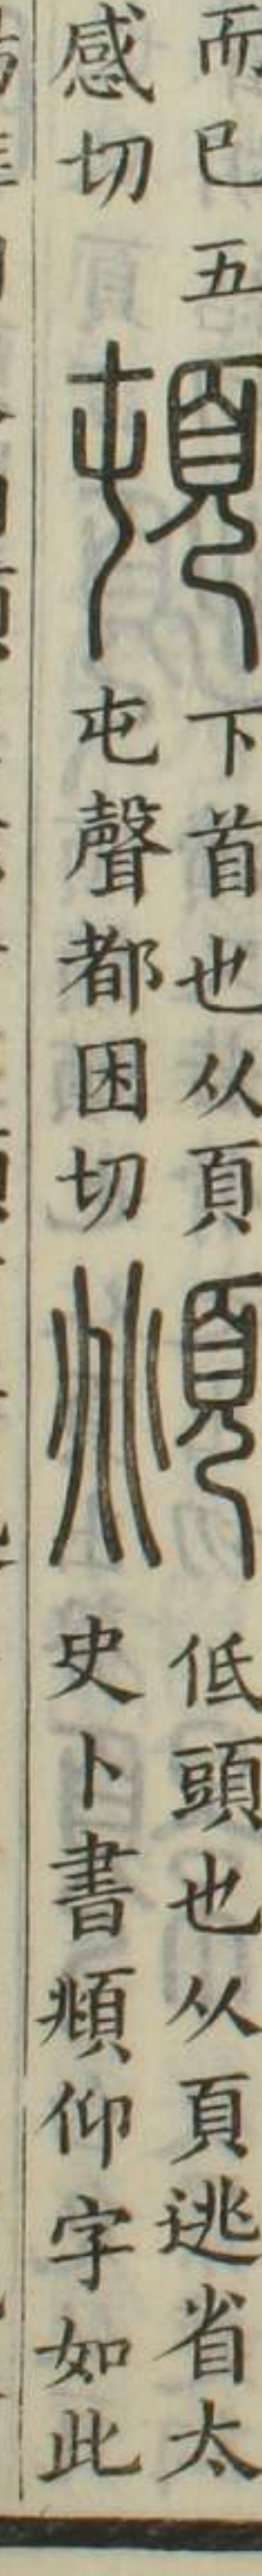 而巳五
感切
頓
下首也从頁
屯聲都困切
頫
低頭也从頁逃省太
史卜書頫仰字如此